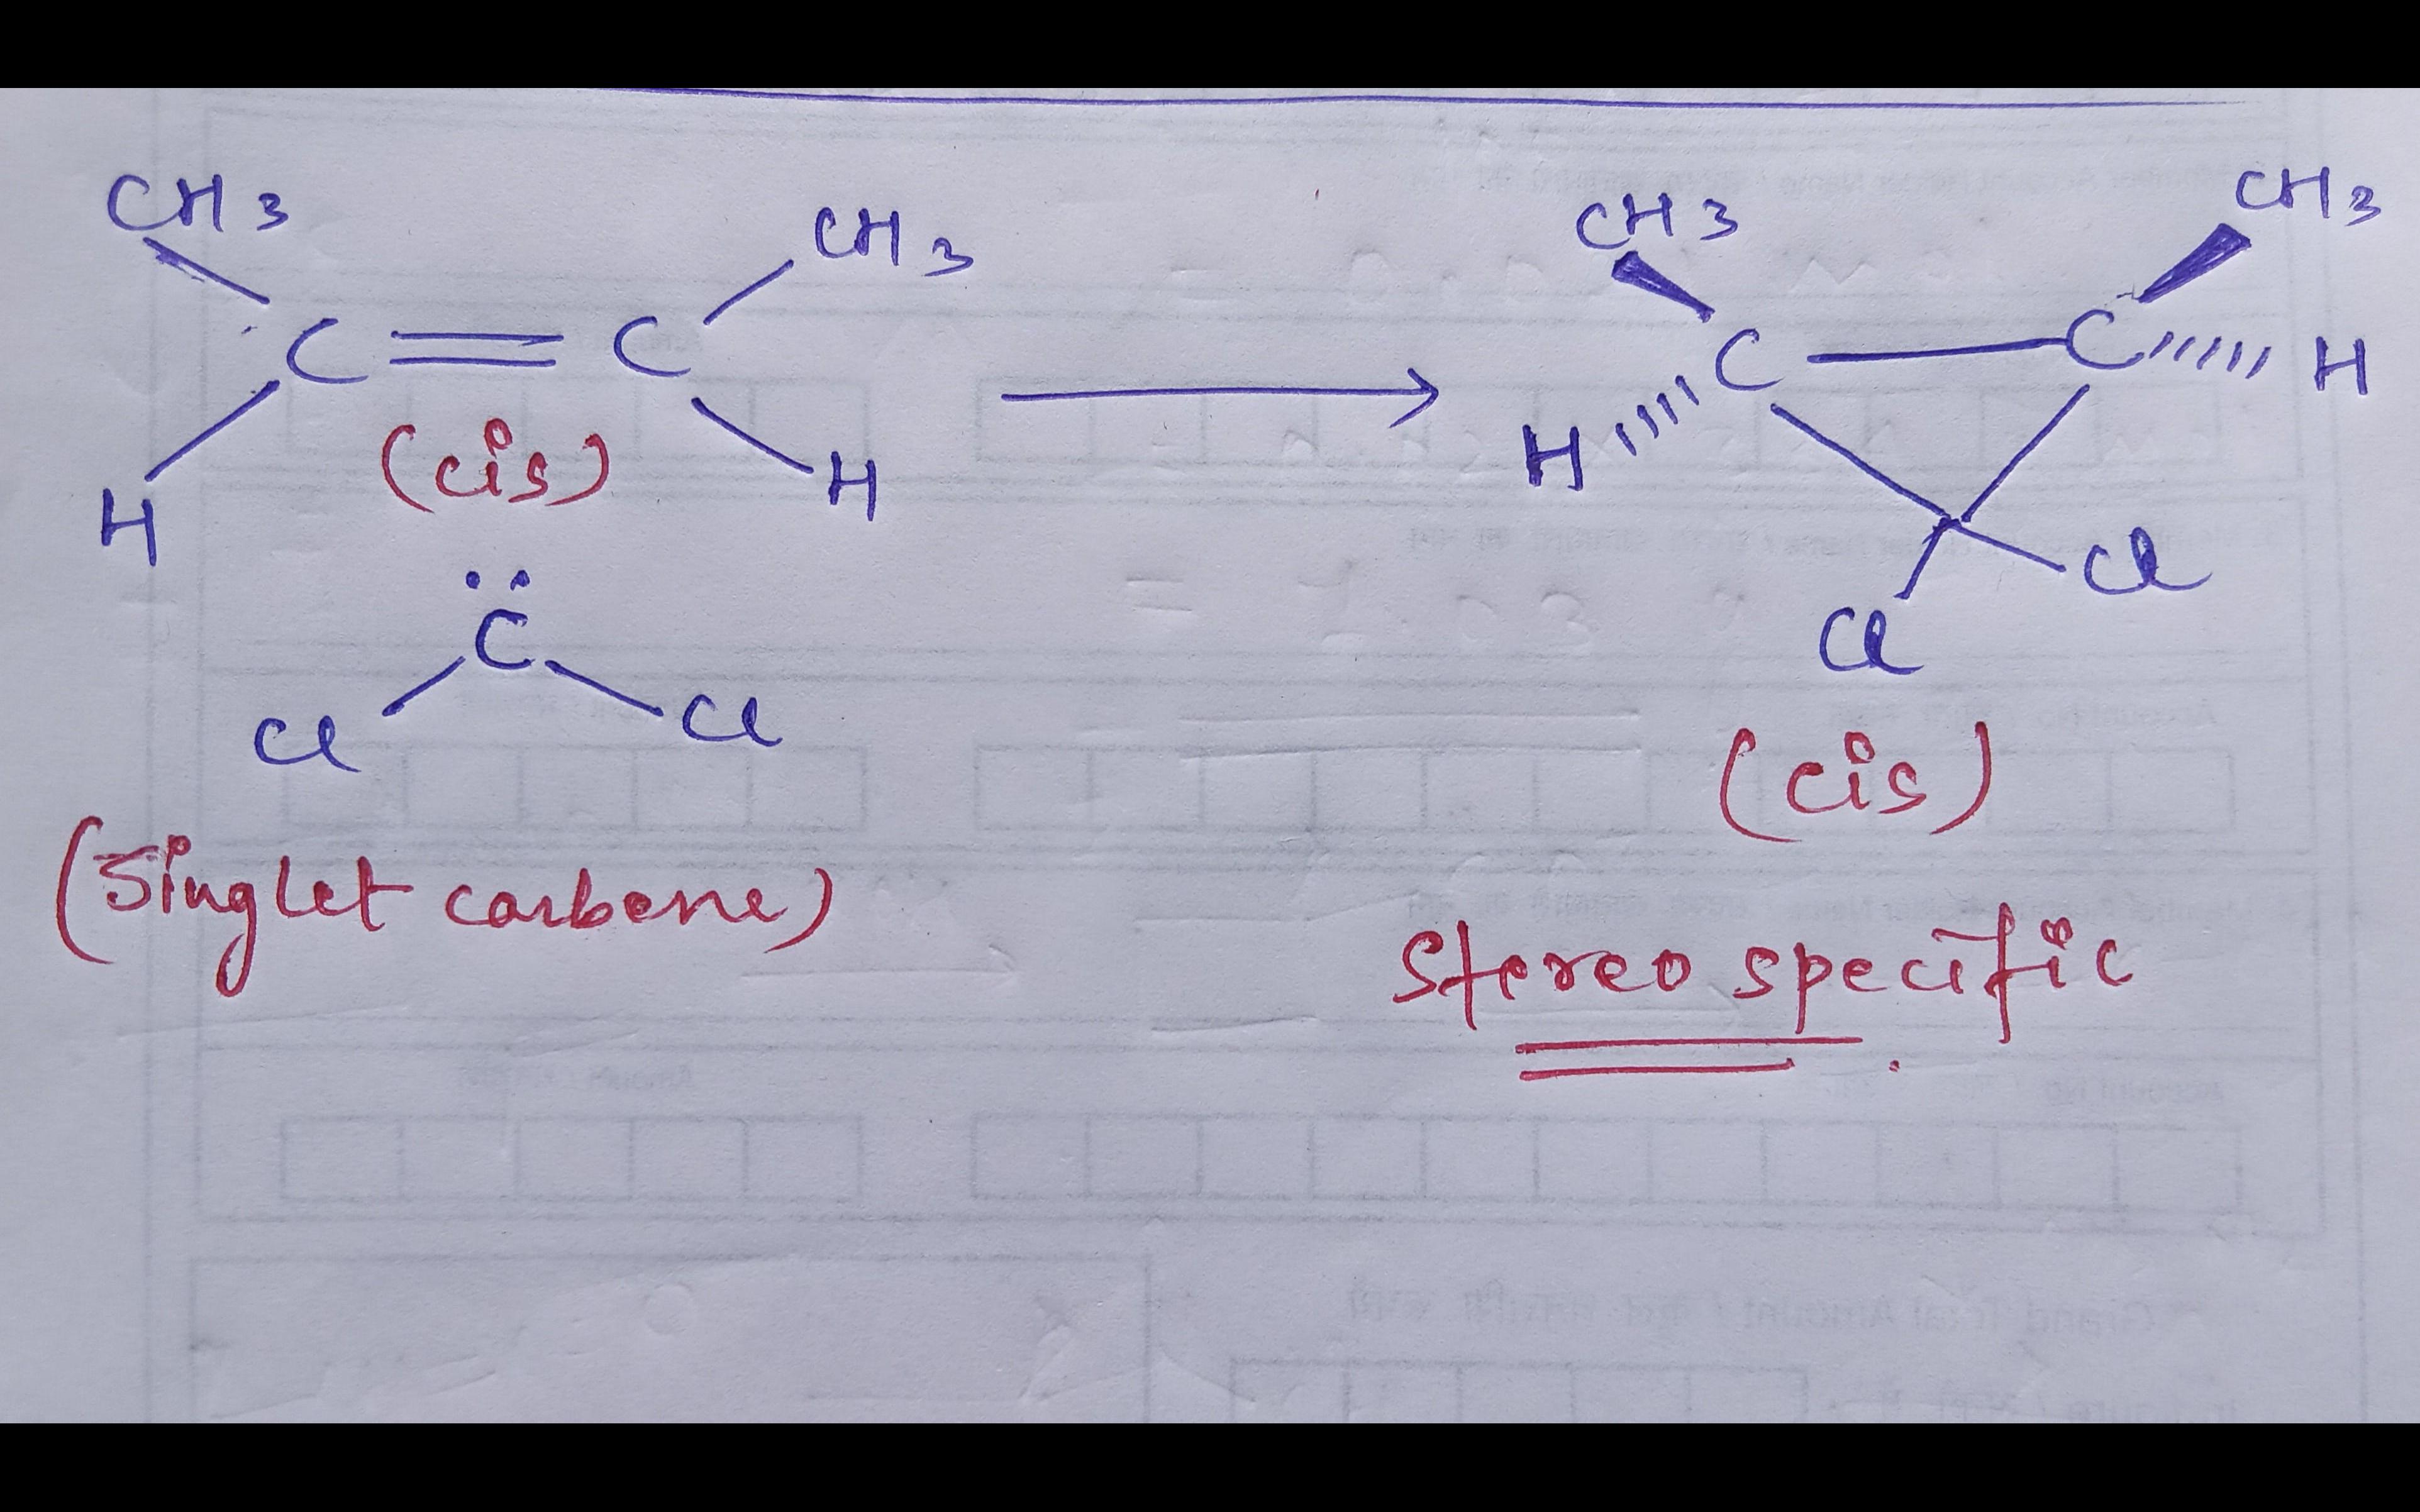 CH3 CH3
C = C
(cis)
H H
C̈
Cl Cl
(Singlet carbene)
CH3 CH3
C C H
H
Cl
Cl
(cis)
Stereo specific